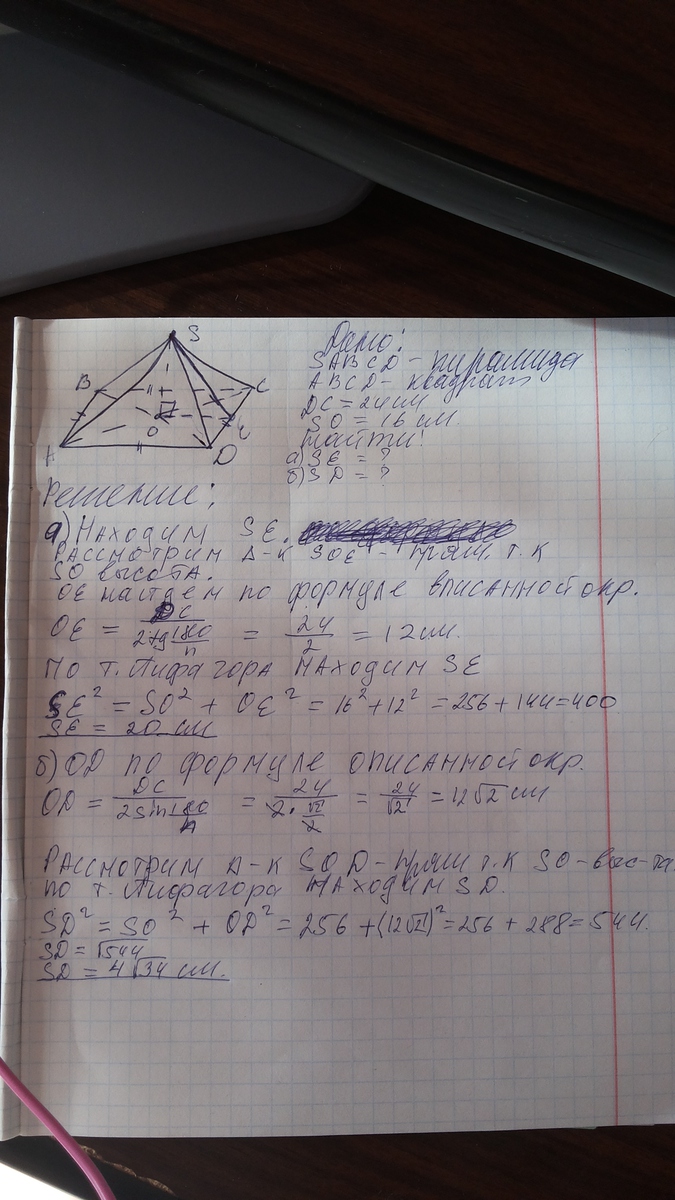 S
B
C
O
E
A
D
Дано:
SABCD - пирамида
ABCD - квадрат
DC = 24 см
SO = 16 см.
Найти:
а) SE = ?
б) SD = ?
Решение:
а) Находим SE.
Рассмотрим Δ-к SOE - прям. т. к
SO высота.
OE найдем по формуле вписанной окр.
OE = DC / (2 tg 180/n) = 24/2 = 12 см.
По т. Пифагора находим SE
SE² = SO² + OE² = 16² + 12² = 256 + 144 = 400
SE = 20 см
б) OD по формуле описанной окр.
OD = DC / (2 sin 180/n) = 24 / (2 · √2/2) = 24/√2 = 12√2 см
Рассмотрим Δ-к SOD - прям т. к SO - выс-та.
По т. Пифагора находим SD.
SD² = SO² + OD² = 256 + (12√2)² = 256 + 288 = 544.
SD = √544
SD = 4√34 см.